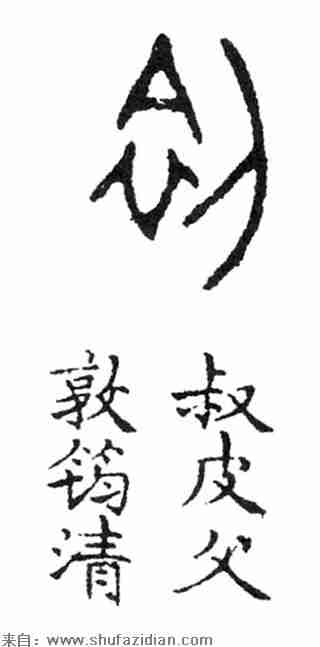 叔皮父
敦筠清
来自：www.shufazidian.com